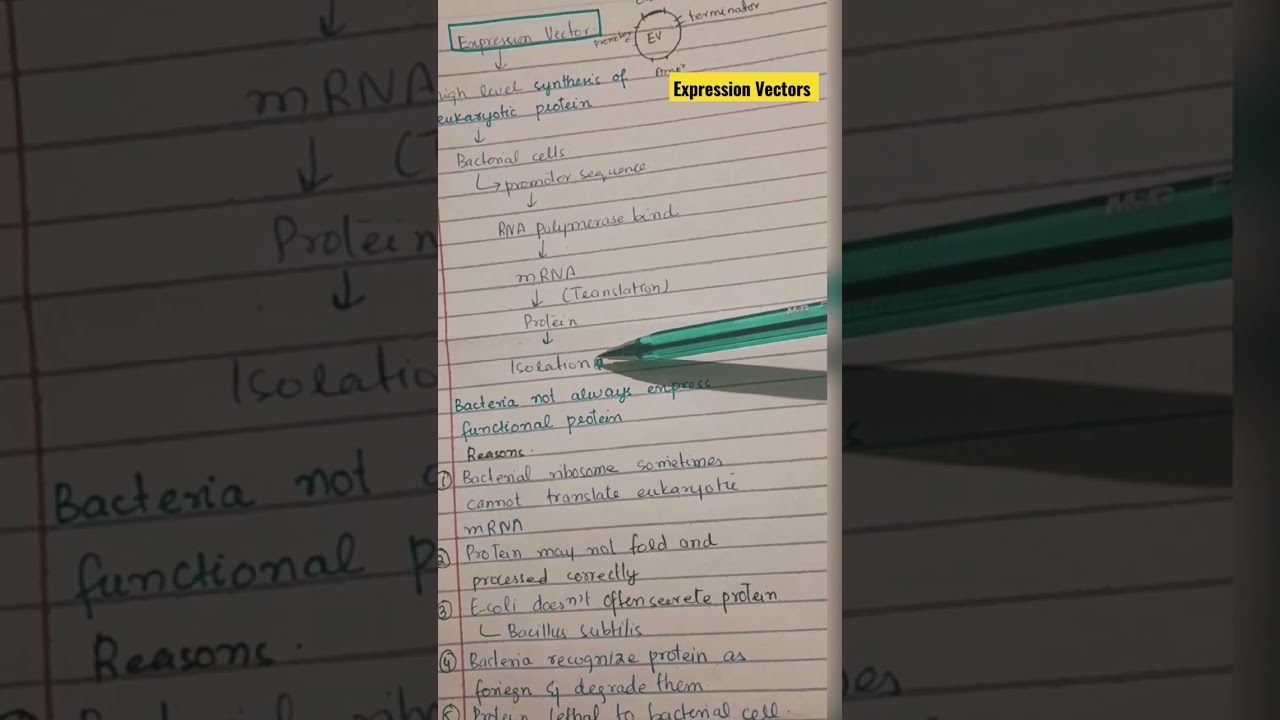 Expression Vector
terminator
promoter
EV
Ampr
Expression Vectors
high level synthesis of
eukaryotic protein
↓
Bacterial cells
↳ promoter sequence
↓
RNA polymerase bind
↓
mRNA
↓ (Translation)
Protein
↓
Isolation
Bacteria not always express
functional protein
Reasons.
① Bacterial ribosome sometimes
cannot translate eukaryotic
mRNA
② Protein may not fold and
processed correctly
③ E.coli doesn't often secrete protein
Bacillus subtilis
④ Bacteria recognize protein as
foriegn & degrade them
⑤ Protein lethal to bacterial cell.